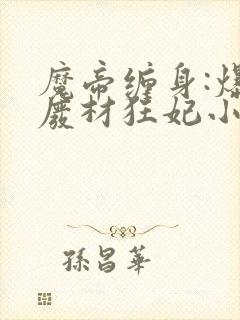 魔帝缠身:爆
废材狂妃小
孫昌華